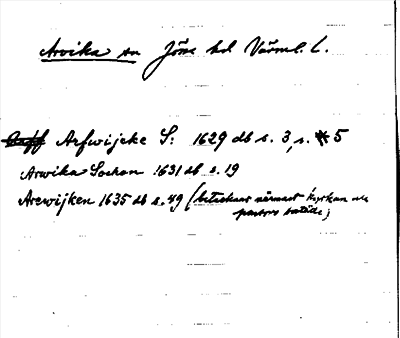 Arvika sn Jösse hd Värml. L.
Arfwijcke S: 1629 db s. 3, s. 5
Arwika Sochen 1631 db s. 19
Arewijken 1635 db s. 49 (betecknar närmast kyrkan och
pastors boställe)